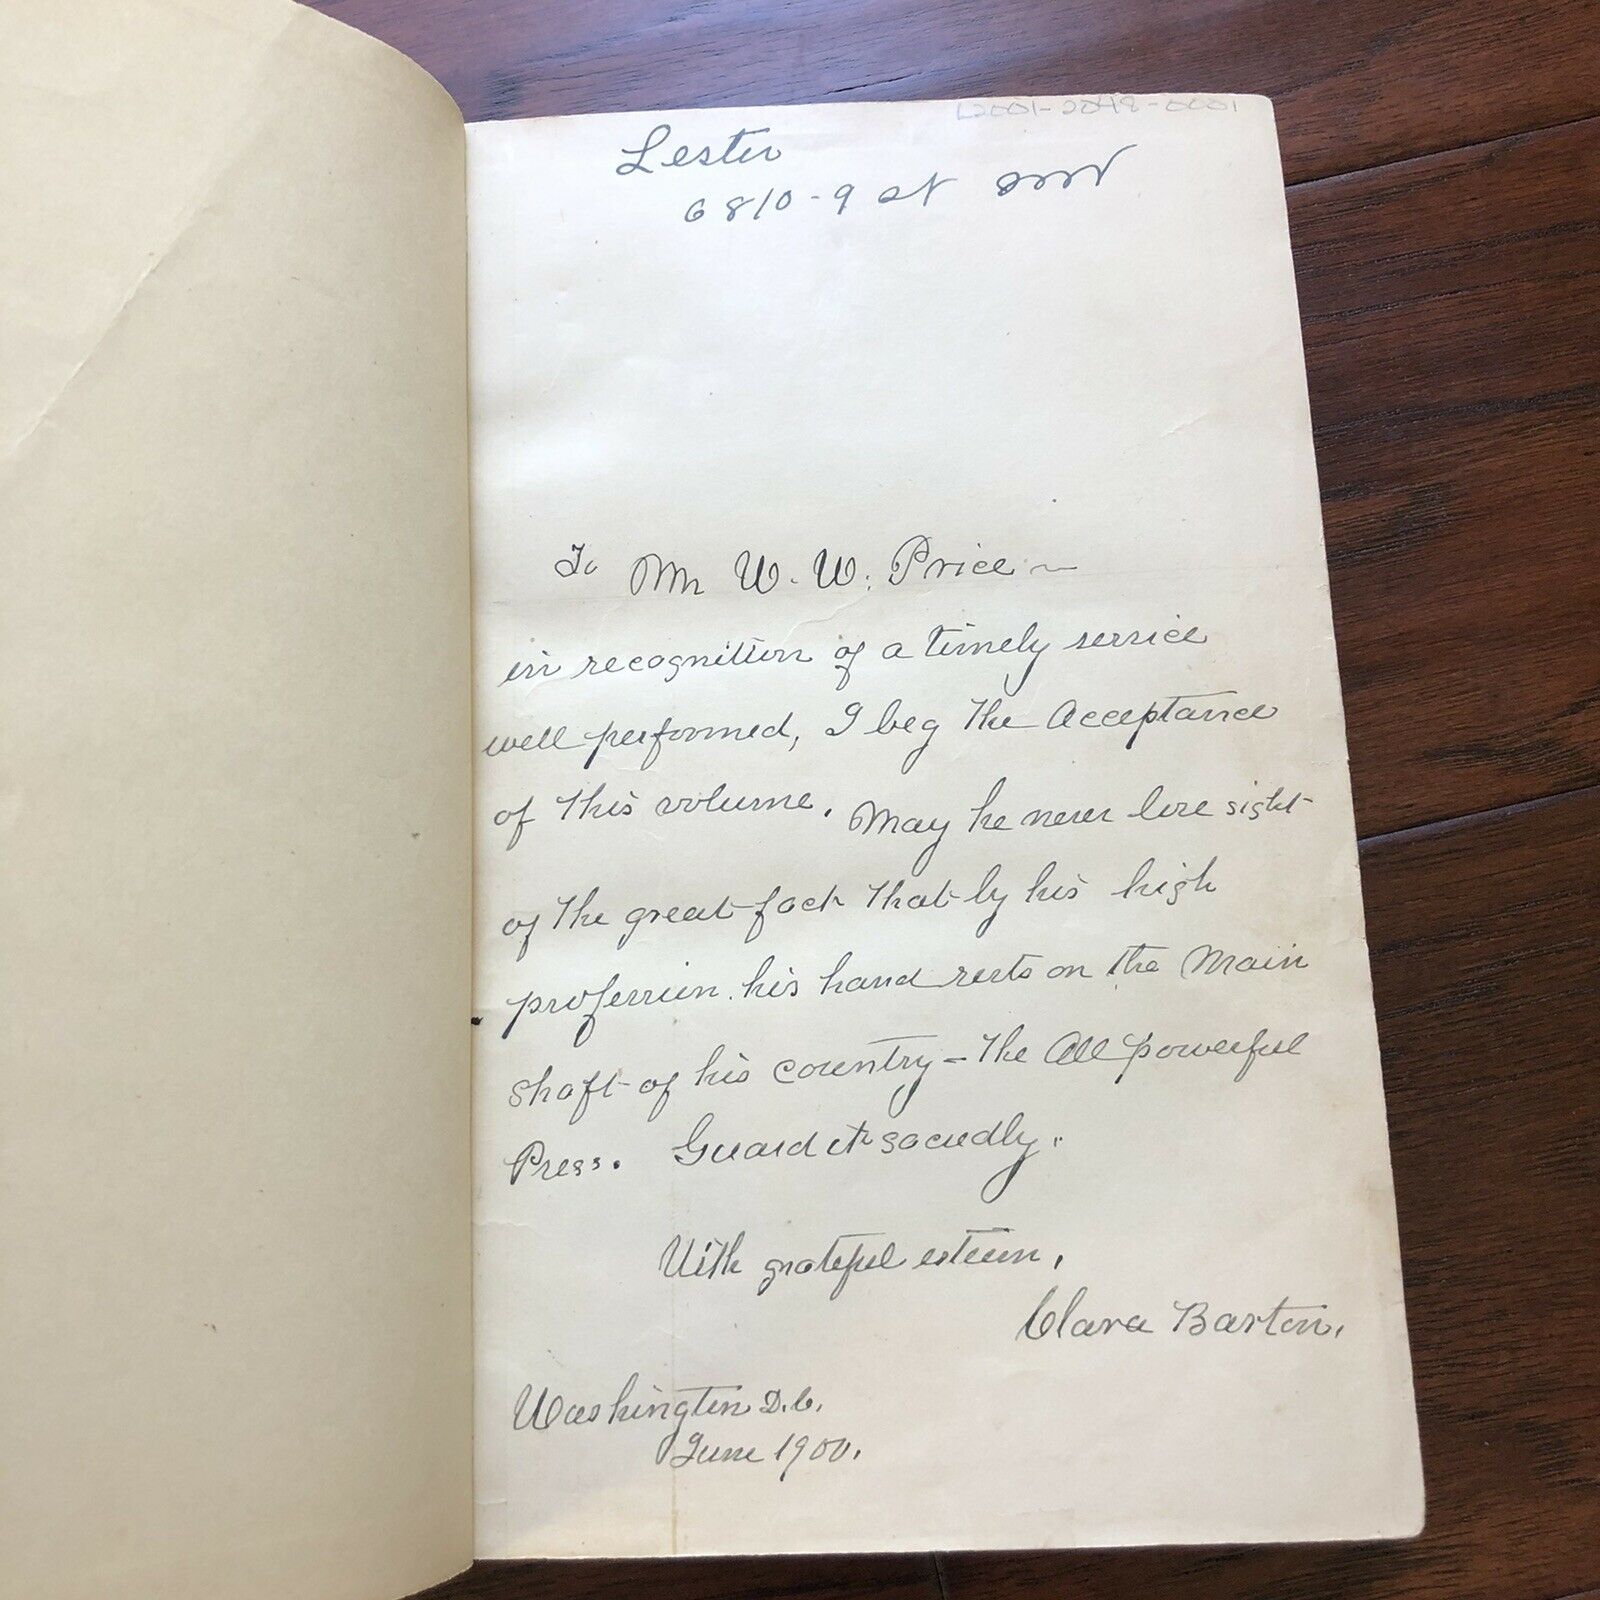 L2001-2048-0001
Lester
6810-9 St NW
To Mr W. W. Price —
in recognition of a timely service
well performed, I beg the acceptance
of this volume. May he never lose sight
of the great fact that by his high
profession his hand rests on the Main
shaft of his country – the All powerful
Press. Guard it sacredly.
With grateful esteem,
Clara Barton,
Washington D.C.
June 1900.